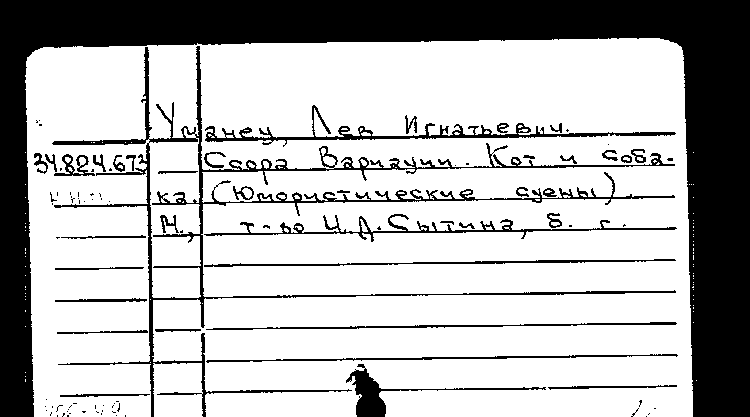 Уманец, Лев Игнатьевич.
34.824.673 Ссора. Вариации. Кот и соба-
ка. (Юмористические сцены).
М., т-во И.Д.Сытина, б. г.